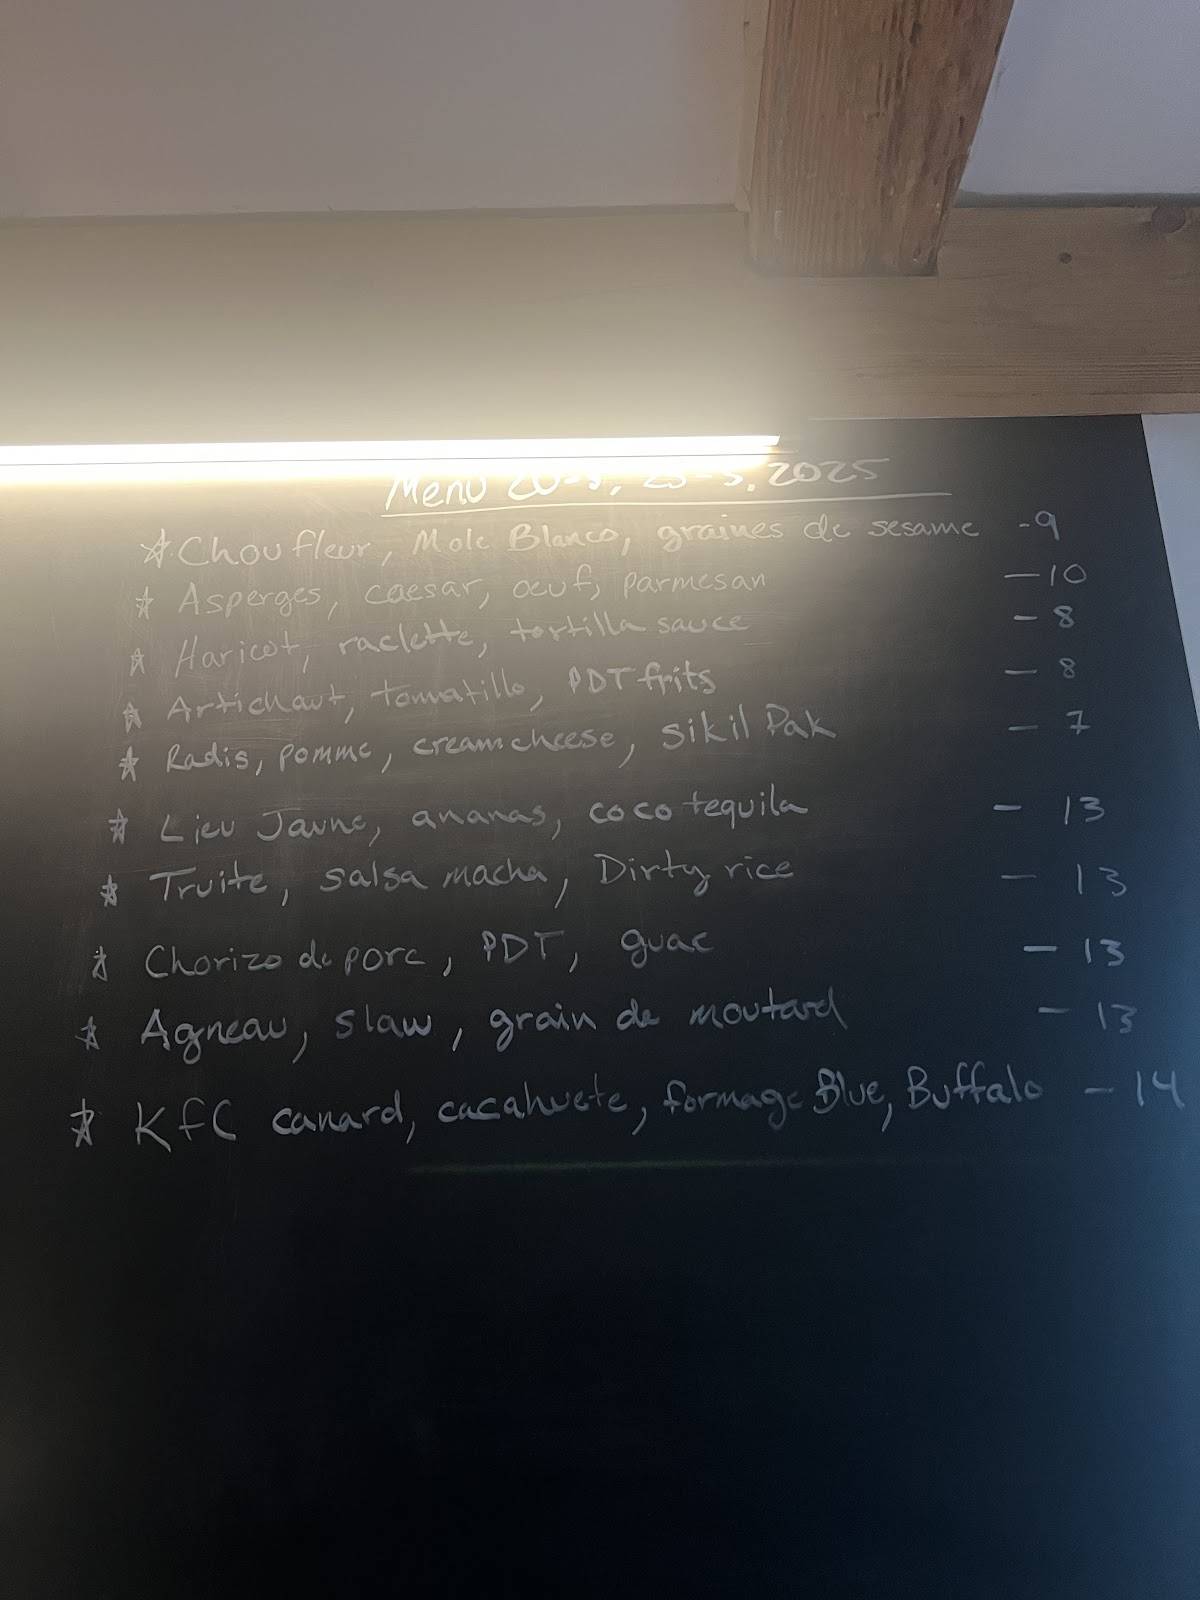 Menu 20-5, 23-5, 2025
☆ Chou fleur, Mole Blanco, graines de sesame -9
☆ Asperges, caesar, oeuf, parmesan -10
☆ Haricot, raclette, tortilla sauce -8
☆ Artichaut, tomatillo, PDT frits -8
☆ Radis, pomme, creamcheese, sikil Pak -7
☆ Lieu Jaune, ananas, coco tequila - 13
☆ Truite, salsa macha, Dirty rice - 13
☆ Chorizo de porc, PDT, guac - 13
☆ Agneau, slaw, grain de moutard - 13
☆ KfC canard, cacahuete, formage Blue, Buffalo - 14